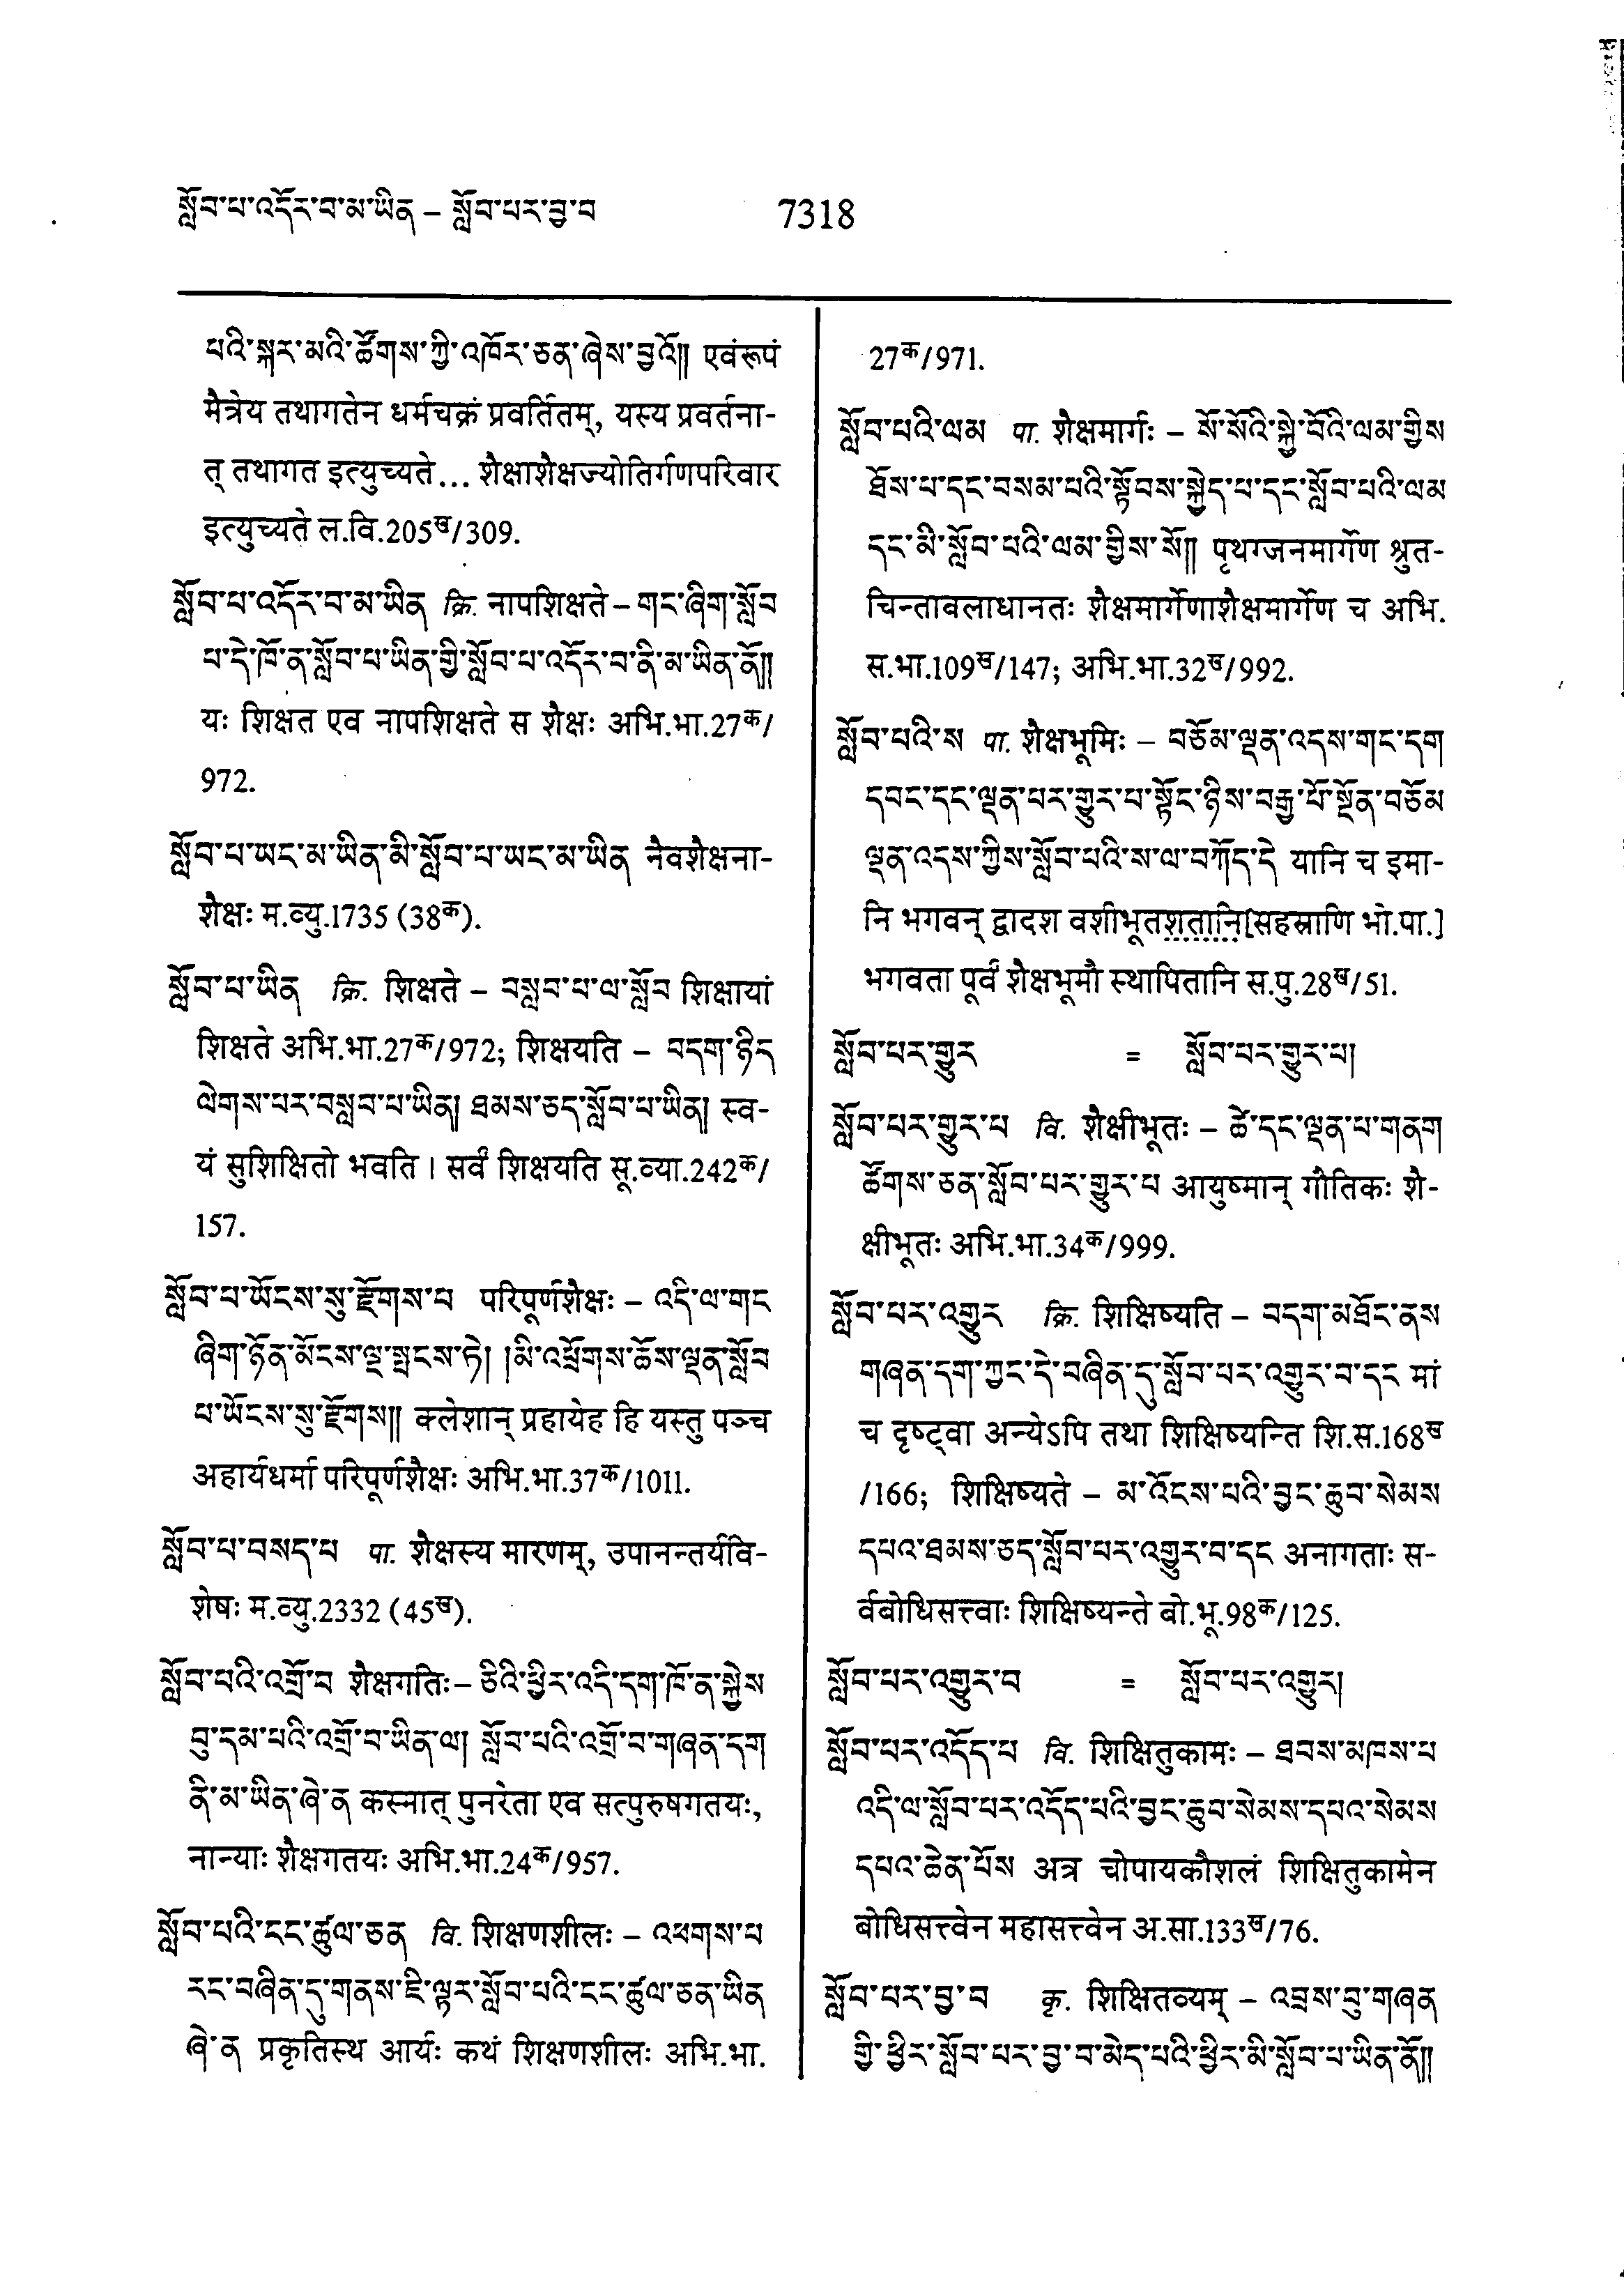 སློབ་པ་འདོར་བ་མ་ཡིན – སློབ་པར་བྱ་བ
7318
པའི་སྐར་མའི་ཚོགས་ཀྱི་འཁོར་ཅན་ཞེས་བྱའོ།། एवंरूपं
मैत्रेय तथागतेन धर्मचक्रं प्रवर्तितम्, यस्य प्रवर्तना-
त् तथागत इत्युच्यते... शैक्षाशैक्षज्योतिर्गणपरिवार
इत्युच्यते ल.वि.205ख/309.
སློབ་པ་འདོར་བ་མ་ཡིན क्रि. नापशिक्षते – གང་ཞིག་སློབ
པ་དེ་ཁོ་ན་སློབ་པ་ཡིན་གྱི་སློབ་པ་འདོར་བ་ནི་མ་ཡིན་ནོ།།
यः शिक्षत एव नापशिक्षते स शैक्षः अभि.भा.27क/
972.
སློབ་པ་ཡང་མ་ཡིན་མི་སློབ་པ་ཡང་མ་ཡིན नैवशैक्षना-
शैक्षः म.व्यु.1735 (38क).
སློབ་པ་ཡིན क्रि. शिक्षते – བསླབ་པ་ལ་སློབ शिक्षायां
शिक्षते अभि.भा.27क/972; शिक्षयति – བདག་ཉིད
ལེགས་པར་བསླབ་པ་ཡིན། ཐམས་ཅད་སློབ་པ་ཡིན། स्व-
यं सुशिक्षितो भवति । सर्वं शिक्षयति सू.व्या.242क/
157.
སློབ་པ་ཡོངས་སུ་རྫོགས་པ परिपूर्णशैक्षः – འདི་ལ་གང
ཞིག་ཉོན་མོངས་ལྔ་སྤངས་ཏེ། །མི་འཕྲོགས་ཆོས་ལྡན་སློབ
པ་ཡོངས་སུ་རྫོགས།། क्लेशान् प्रहायेह हि यस्तु पञ्च
अहार्यधर्मा परिपूर्णशैक्षः अभि.भा.37क/1011.
སློབ་པ་བསད་པ पा. शैक्षस्य मारणम्, उपानन्तर्यवि-
शेषः म.व्यु.2332 (45ख).
སློབ་པའི་འགྲོ་བ शैक्षगतिः – ཅིའི་ཕྱིར་འདི་དག་ཁོ་ན་སྐྱེས
བུ་དམ་པའི་འགྲོ་བ་ཡིན་ལ། སློབ་པའི་འགྲོ་བ་གཞན་དག
ནི་མ་ཡིན་ཞེ་ན कस्मात् पुनरेता एव सत्पुरुषगतयः,
नान्याः शैक्षगतयः अभि.भा.24क/957.
སློབ་པའི་ངང་ཚུལ་ཅན वि. शिक्षणशीलः – འཕགས་པ
རང་བཞིན་དུ་གནས་ཇི་ལྟར་སློབ་པའི་ངང་ཚུལ་ཅན་ཡིན
ཞེ་ན प्रकृतिस्थ आर्यः कथं शिक्षणशीलः अभि.भा.
27क/971.
སློབ་པའི་ལམ पा. शैक्षमार्गः – སོ་སོའི་སྐྱེ་བོའི་ལམ་གྱིས
ཐོས་པ་དང་བསམ་པའི་སྟོབས་སྐྱེད་པ་དང་སློབ་པའི་ལམ
དང་མི་སློབ་པའི་ལམ་གྱིས་སོ།། पृथग्जनमार्गेण श्रुत-
चिन्तावलाधानतः शैक्षमार्गेणाशैक्षमार्गेण च अभि.
स.भा.109ख/147; अभि.भा.32ख/992.
སློབ་པའི་ས पा. शैक्षभूमिः – བཅོམ་ལྡན་འདས་གང་དག
དབང་དང་ལྡན་པར་གྱུར་པ་སྟོང་ཉིས་བརྒྱ་པོ་སྔོན་བཅོམ
ལྡན་འདས་ཀྱིས་སློབ་པའི་ས་ལ་བཀོད་དེ यानि च इमा-
नि भगवन् द्वादश वशीभूतशतानि[सहस्राणि भो.पा.]
भगवता पूर्वं शैक्षभूमौ स्थापितानि स.पु.28ख/51.
སློབ་པར་གྱུར = སློབ་པར་གྱུར་པ།
སློབ་པར་གྱུར་པ वि. शैक्षीभूतः – ཚེ་དང་ལྡན་པ་གནག
ཚོགས་ཅན་སློབ་པར་གྱུར་པ आयुष्मान् गौतिकः शै-
क्षीभूतः अभि.भा.34क/999.
སློབ་པར་འགྱུར क्रि. शिक्षिष्यति – བདག་མཐོང་ནས
གཞན་དག་ཀྱང་དེ་བཞིན་དུ་སློབ་པར་འགྱུར་བ་དང मां
च दृष्ट्वा अन्येऽपि तथा शिक्षिष्यन्ति शि.स.168ख
/166; शिक्षिष्यते – མ་འོངས་པའི་བྱང་ཆུབ་སེམས
དཔའ་ཐམས་ཅད་སློབ་པར་འགྱུར་བ་དང अनागताः स-
र्वबोधिसत्त्वाः शिक्षिष्यन्ते बो.भू.98क/125.
སློབ་པར་འགྱུར་བ = སློབ་པར་འགྱུར།
སློབ་པར་འདོད་པ वि. शिक्षितुकामः – ཐབས་མཁས་པ
འདི་ལ་སློབ་པར་འདོད་པའི་བྱང་ཆུབ་སེམས་དཔའ་སེམས
དཔའ་ཆེན་པོས अत्र चोपायकौशलं शिक्षितुकामेन
बोधिसत्त्वेन महासत्त्वेन अ.सा.133ख/76.
སློབ་པར་བྱ་བ कृ. शिक्षितव्यम् – འབྲས་བུ་གཞན
གྱི་ཕྱིར་སློབ་པར་བྱ་བ་མེད་པའི་ཕྱིར་མི་སློབ་པ་ཡིན་ནོ།།